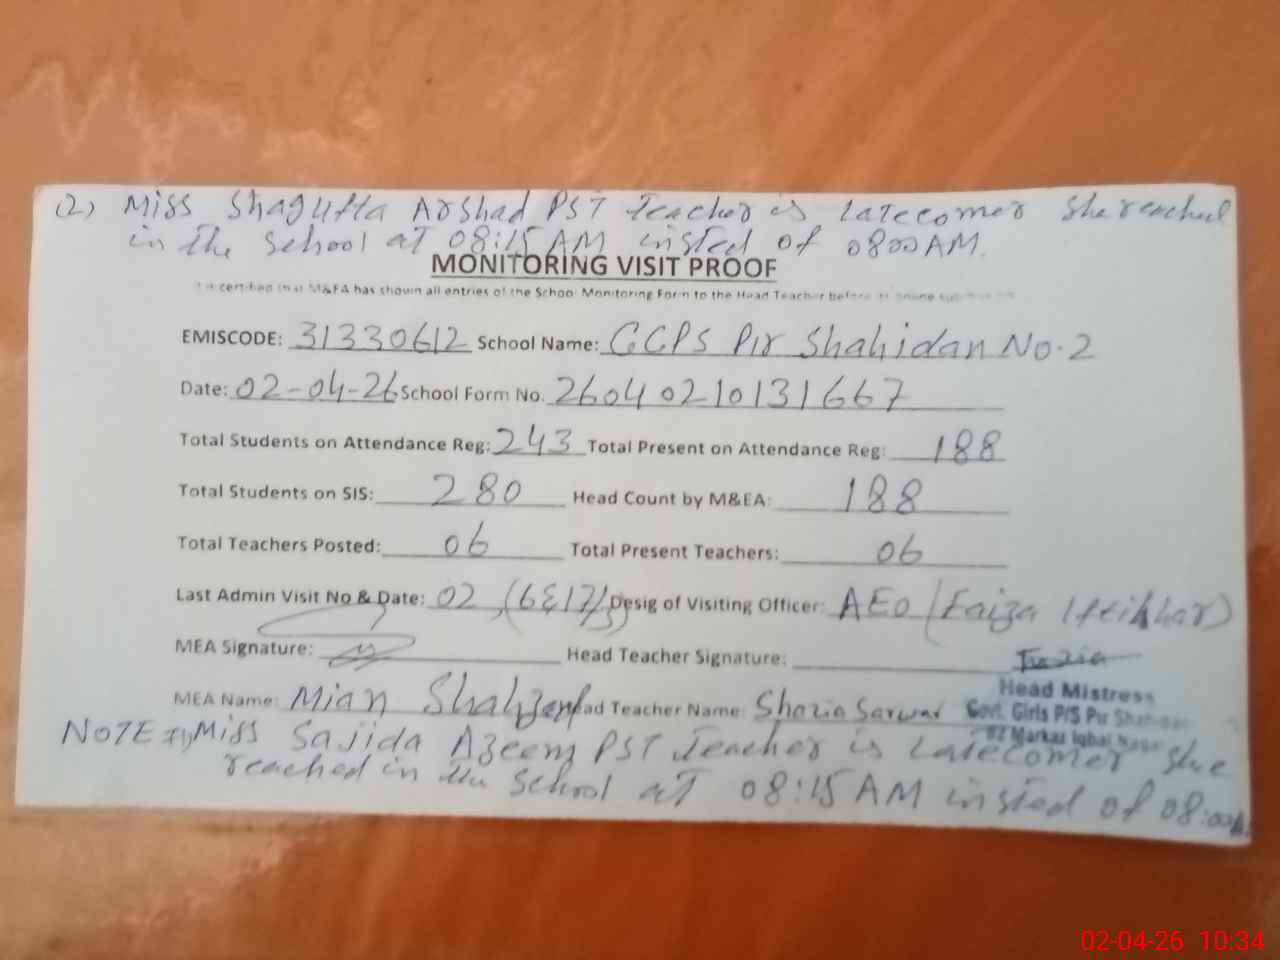 (2) Miss Shagufta Arshad PST Teacher is Latecomer She reached
in the School at 08:15 AM insted of 0800 AM.
MONITORING VISIT PROOF
It is certified that M&EA has shown all entries of the School Monitoring Form to the Head Teacher before its online submission
EMISCODE: 31330612 School Name: GGPS Pir Shahidan No.2
Date: 02-04-26 School Form No. 26040210131667
Total Students on Attendance Reg: 243 Total Present on Attendance Reg: 188
Total Students on SIS: 280 Head Count by M&EA: 188
Total Teachers Posted: 06 Total Present Teachers: 06
Last Admin Visit No & Date: 02, (6&17/3) Desig of Visiting Officer: AEO (Faiza Iftikhar)
MEA Signature: Head Teacher Signature:
Head Mistress
MEA Name: Mian Head Teacher Name: Shazia Sarwar Govt. Girls P/S Pir Shahidan
Markaz Iqbal Nagar
NOTE (1) Miss Sajida Azeem PST Teacher is Latecomer She
reached in the School at 08:15 AM insted of 08:00
02-04-26 10:34